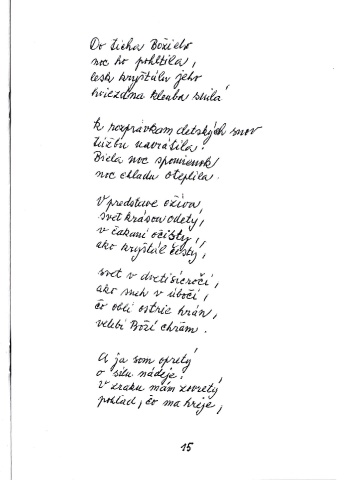 Do ticha Božieho
noc ho pohltila,
lesk kryštálu jeho
hviezdna klenba sníla

K rozprávkam detských snov
túžbu navrátila.
Biela noc spomienok
noc chladu oteplila.

V predstave ožíva,
svet krásou odety,
v čakaní očistý,
ako kryštál čistý,

svet v dvetisícročí,
ako sneh v úbočí,
čo oblí ostrie hrán,
velebí Boží chrám.

A ja som opretý
o silu nádeje.
V zraku mám zovretý
pohľad, čo ma hreje,

15